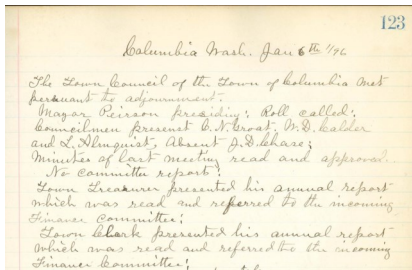 123
Columbia Wash. Jan 6th 1/96
The Town Council of the Town of Columbia met
persuant to adjournment.
Mayor Peirson presiding; Roll called;
Councilmen present C. N. Croat, W. D. Calder
and L. Almquist, Absent J. D. Chase;
Minutes of last meeting read and approved.
No committee report;
Town Treasurer presented his annual report
which was read and referred to the incoming
Finance Committee;
Town Clerk presented his annual report
which was read and referred to the incoming
Finance Committee;